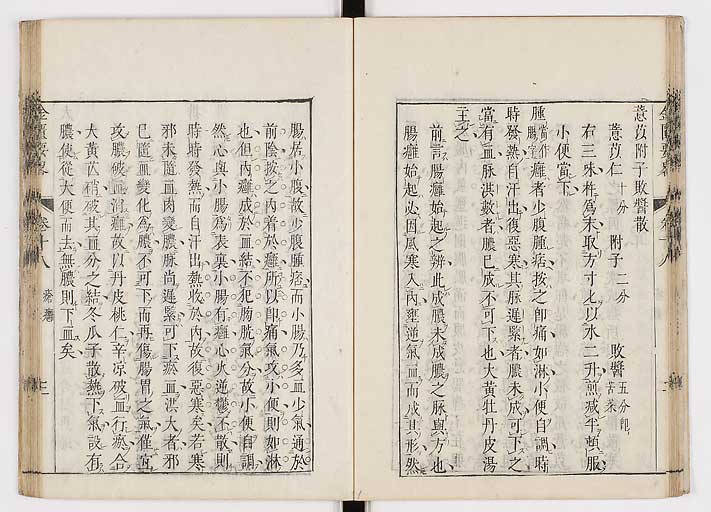 薏苡附子敗醬散
薏苡仁十分 附子二分 敗醬五分即苦菜
右三味杵為末取方寸匕以水二升煎減半頓服
小便當下
腫當作腸字癰者少腹腫痞按之即痛如淋小便自調時
時發熱自汗出復惡寒其脉遲緊者膿未成可下之
當有血脉洪數者膿已成不可下也大黃牡丹皮湯
主之
前言腸癰始起之辨此成膿未成膿之脉與方也
腸癰始起必因風寒入內壅逆氣血而成其形然
金匱要畧 卷十八
腸居小腹故少腹腫痞而小腸乃多血少氣通於
前陰按之內着於癰所以即痛氣攻小便則如淋
也但內癰成於血結不犯膀胱氣分故小便自調
然心與小腸為表裏小腸有癰心火逆鬱不散則
時時發熱而自汗出熱收於內故復惡寒矣若寒
邪未隨血肉變膿脉尚遲緊可下瘀血洪大者邪
已隨血變化為膿不可下而再傷腸胃之氣僅宜
攻膿破血消癰故以丹皮桃仁辛凉破血行瘀合
大黃以稍破其血分之結冬瓜子散熱下氣設有
膿使從大便而去無膿則下血矣
金匱要畧 卷十八 瘡癰